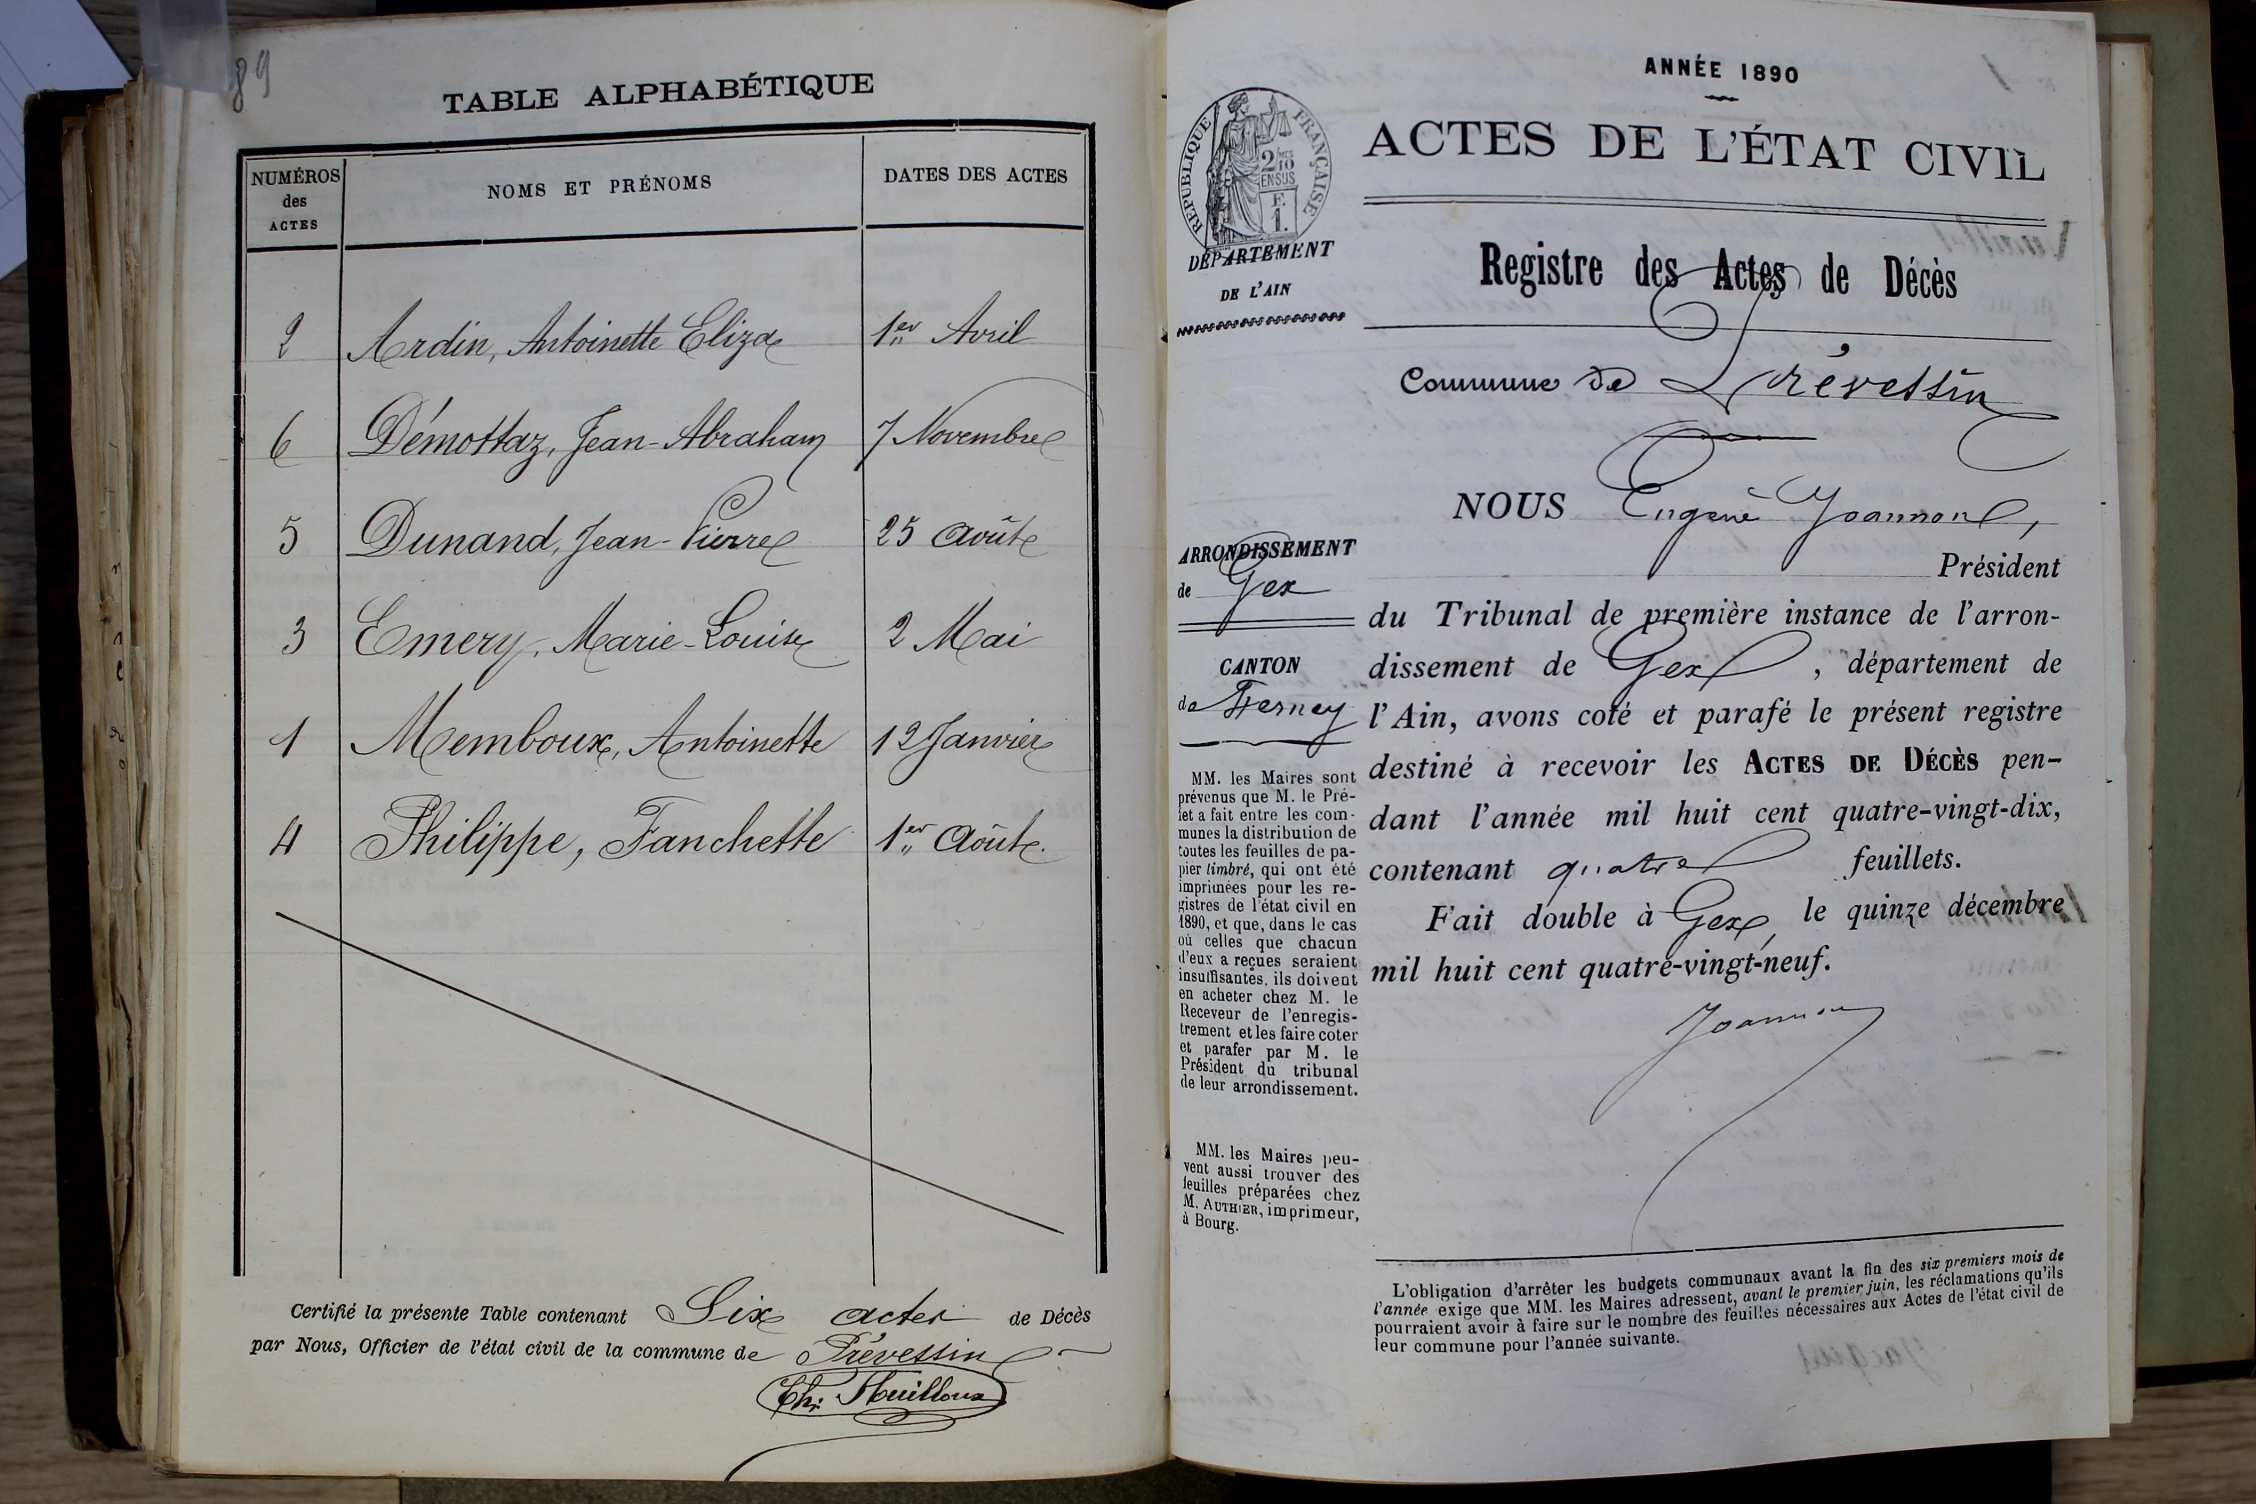 89
TABLE ALPHABÉTIQUE
NUMÉROS
des
ACTES
NOMS ET PRÉNOMS
DATES DES ACTES
2 Ardin, Antoinette Eliza 1er Avril
6 Démottaz, Jean-Abraham 7 Novembre
5 Dunand, Jean-Pierre 25 Août
3 Emery, Marie-Louise 2 Mai
1 Memboux, Antoinette 12 Janvier
4 Philippe, Fanchette 1er Août.
Certifié la présente Table contenant Six actes de Décès
par Nous, Officier de l'état civil de la commune de Prévessin
ANNÉE 1890
ACTES DE L'ÉTAT CIVIL
RÉPUBLIQUE FRANÇAISE
2/10 EN SUS
F.
1.
DÉPARTEMENT
DE L'AIN
Registre des Actes de Décès
Commune de Prévessin
NOUS Eugène Joannon,
Président
ARRONDISSEMENT
de Gex
CANTON
de Ferney
du Tribunal de première instance de l'arron-
dissement de Gex, département de
l'Ain, avons coté et parafé le présent registre
destiné à recevoir les ACTES DE DÉCÈS pen-
dant l'année mil huit cent quatre-vingt-dix,
contenant quatre feuillets.
Fait double à Gex, le quinze décembre
mil huit cent quatre-vingt-neuf.
Joannon
MM. les Maires sont
prévenus que M. le Pré-
fet a fait entre les com-
munes la distribution de
toutes les feuilles de pa-
pier timbré, qui ont été
imprimées pour les re-
gistres de l'état civil en
1890, et que, dans le cas
où celles que chacun
d'eux a reçues seraient
insuffisantes, ils doivent
en acheter chez M. le
Receveur de l'enregis-
trement et les faire coter
et parafer par M. le
Président du tribunal
de leur arrondissement.
MM. les Maires peu-
vent aussi trouver des
feuilles préparées chez
M. AUTHIER, imprimeur,
à Bourg.
L'obligation d'arrêter les budgets communaux avant la fin des six premiers mois de
l'année exige que MM. les Maires adressent, avant le premier juin, les réclamations qu'ils
pourraient avoir à faire sur le nombre des feuilles nécessaires aux Actes de l'état civil de
leur commune pour l'année suivante.